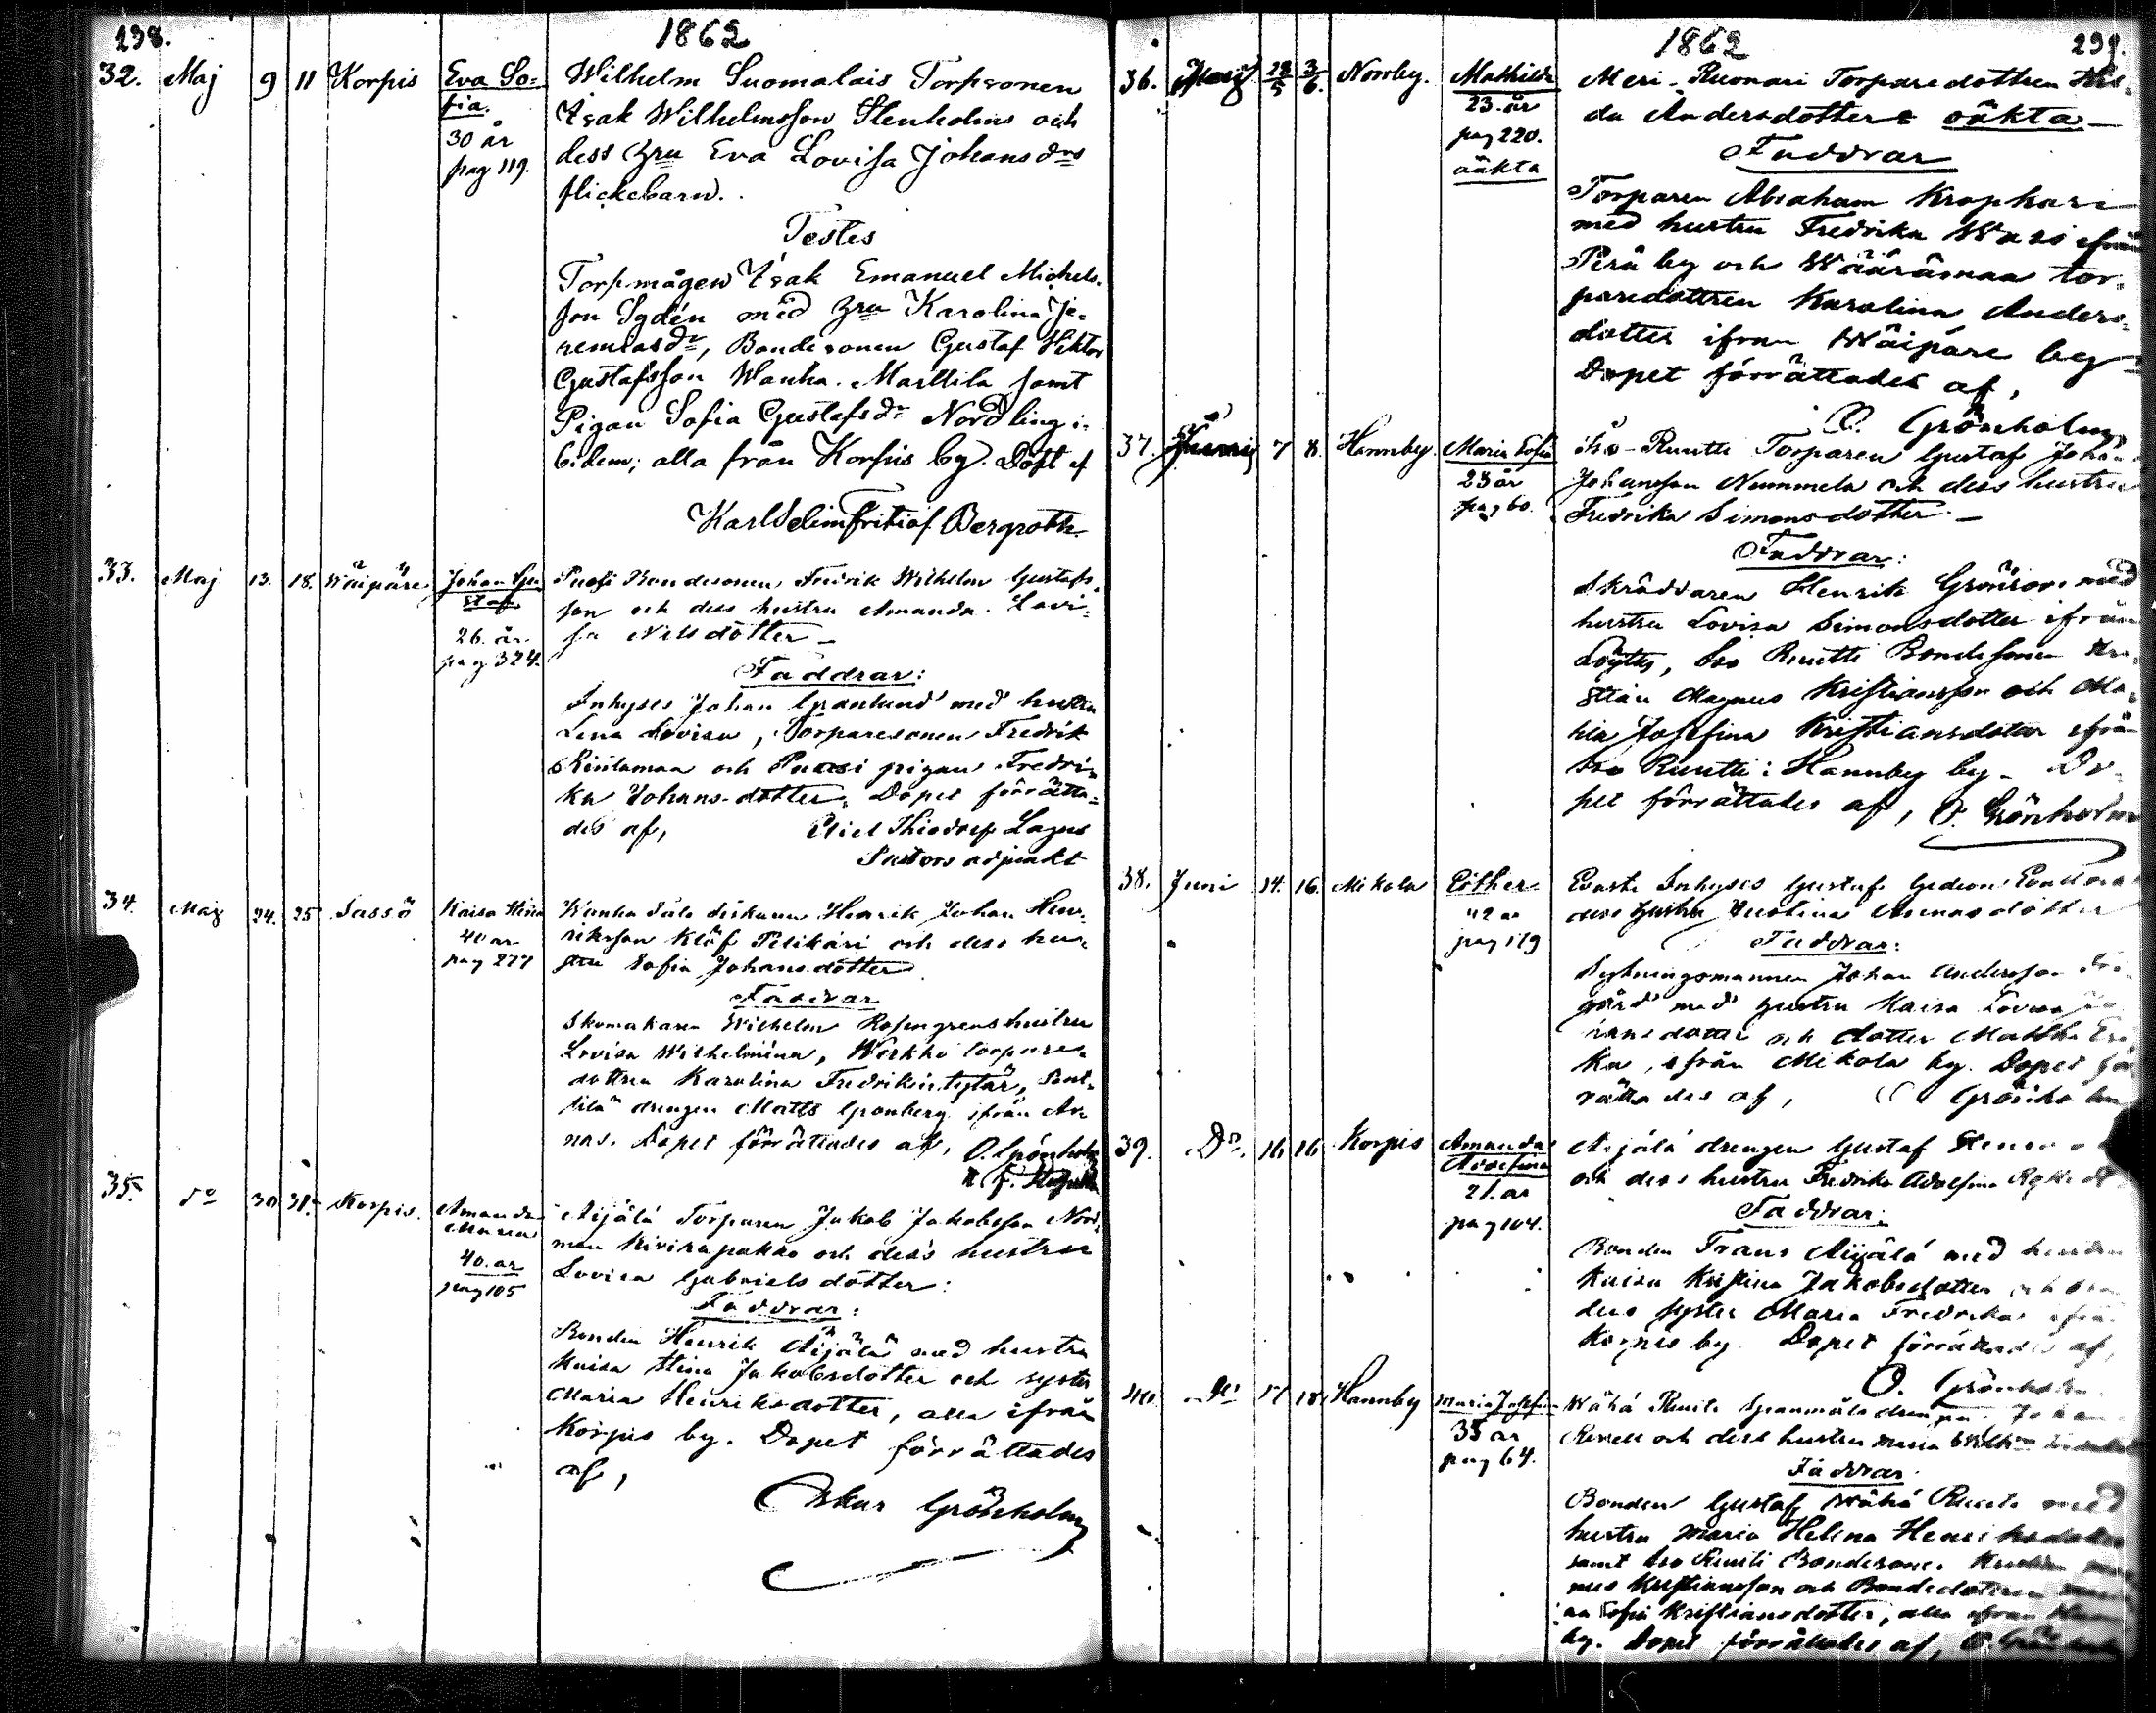 238.
1862
32. Maj 9 11 Korpis
Eva So=
fia.
30 år
pag 119.
Wilhelm Suomalais Torpsonen
Isak Wilhelmsson Stenholms och
dess hru Eva Lovisa Johansdrs
flickebarn.
Testes
Torpmågen Isak Emanuel Michels-
son Sgdén med hru Karolina Je=
remiasdr, Bondesonen Gustaf Viktor
Gustafsson Wanha-Marttila samt
Pigan Sofia Gustafsdr Nordling i-
bidem; alla från Korpis by. Döpt af
Karl Selim Fritiof Bergroth
33. Maj 13. 18. Wäipäre
Johan Gu=
staf
26. år.
pag 324.
Puosi Bondesonen Fredrik Wilhelm Gustafs-
son och dess hustru Amanda Lovi=
sa Nilsdotter
Faddrar:
Inhyses Johan Granlund med hustru
Lena Lovisa, Torparesonen Fredrik
Rintamaa och Puosi pigan Fredri=
ka Johans-dotter. Dopet förrätta=
des af,
Lagus
Pastors adjunkt
34. Maj 24. 25 Sassö
Kaisa Stina
40 år
pag 277
Wanha Henrik Johan Hen=
riksson Klöf och dess hu=
stru Sofia Johansdotter
Faddrar
Skomakaren Wilhelm Rosengrens hustru
Lovisa Wilhelmina, torpare-
dottren Karolina Fredrikintytär,
drengen Matts Grönberg ifrån
Dopet förrättades af, O. Grönholm
35. do 30 31. Korpis.
Amanda
Maria
40. år
pag 105
Äijälä Torparen Jakob Jakobsson Nord=
man och dess hustru
Lovisa Gabrielsdotter:
Faddrar:
Bonden Henrik Äijälä med hustru
Kaisa Stina Jakobsdotter och syster
Maria Henriksdotter, alla ifrån
Korpis by. Dopet förrättades
af,
Oskar Grönholm
1862
239.
36. Maj 28/5 3/6. Norrby.
Mathilda
23. år
pag 220.
oäkta
Meri-Ruonari Torparedottren
da Andersdotters oäkta
Faddrar
Torparen Abraham
med hustru Fredrika ifrån
Perä by och Wäärämaa tor=
paredottren Karolina Anders=
dotter ifrån Wäipäre by
Dopet förrättades af,
O. Grönholm
37. Junij 7 8. Hannby
Maria Sofia
23 år
pag 60.
Iso-Ruutti Torparen Gustaf
Johansson Nummela och dess hustru
Fredrika Simonsdotter
Faddrar:
Skräddaren Henrik Grönroos med
hustru Lovisa Simonsdotter ifrån
Löytty, Iso Ruutti Bondesonen Kri=
stian Magnus Kristiansson och Ma=
ria Josefina Kristiansdotter ifrån
Iso Ruutti i Hannby by. Do=
pet förrättades af, O. Grönholm
38. Juni 14. 16. Mikola
Esther
42 år
pag 119
Inhyses Gustaf
dess hustru Justina
Faddrar:
Johan Andersson
gård med hustru Kaisa Lovisa
dotter och dotter
ka, ifrån Mikola by. Dopet för
rättades af, Grönholm
39. Do. 16 16 Korpis
Amanda
Adolfina
21. år
pag 104.
Äijälä drengen Gustaf
och dess hustru Fredrika Adolfina
Faddrar:
Bonden Frans Äijälä med hustru
Kaisa Kristina Jakobsdotter och
dess syster Maria Fredrika ifrån
Korpis by. Dopet förrättades af,
O. Grönholm
40. Do 17 18. Hannby
Maria Josefina
35 år
pag 64.
Wähä Ruuti
och dess hustru Maria
Faddrar
Bonden Gustaf Wähä Ruuti med
hustru Maria Helena Henriksdotter
samt Iso Ruuti Bondesonen
nus Kristiansson och Bondedottren
Sofia Kristiansdotter, alla ifrån
by. Dopet förrättades af, O. Grönholm